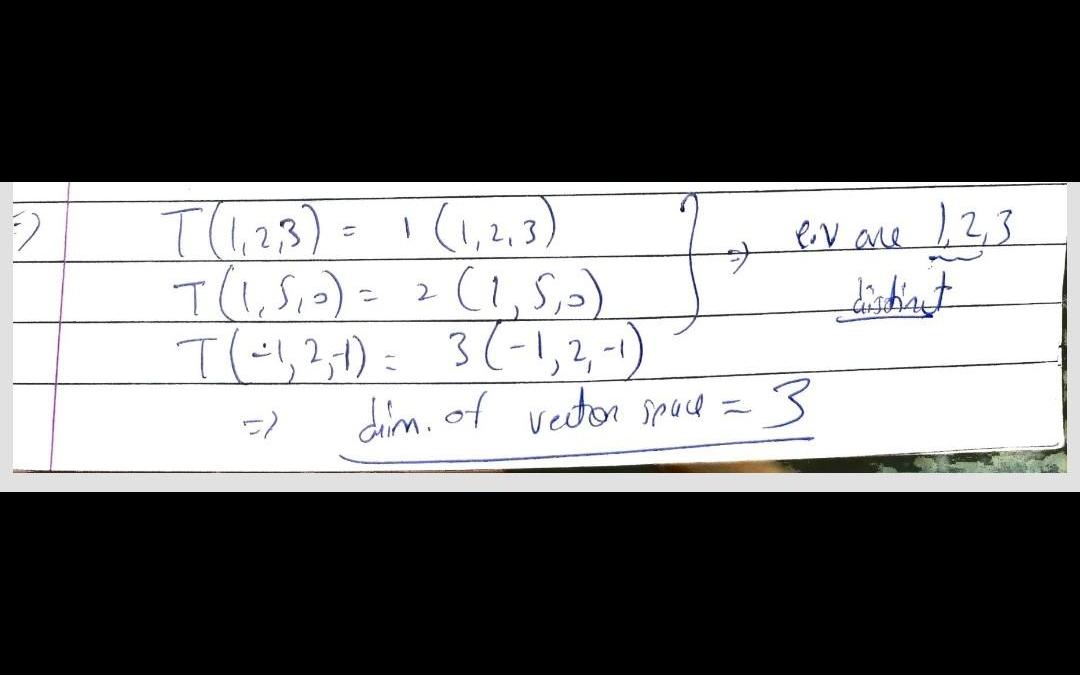 => T(1,2,3) = 1 (1,2,3) } => e.v are 1,2,3
T(1,5,0) = 2 (1,5,0) distinct
T(-1,2,-1) = 3 (-1,2,-1)
=> dim. of vector space = 3